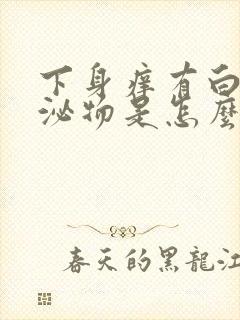 下身痒有白
泌物是怎麼
春天的黑龍江